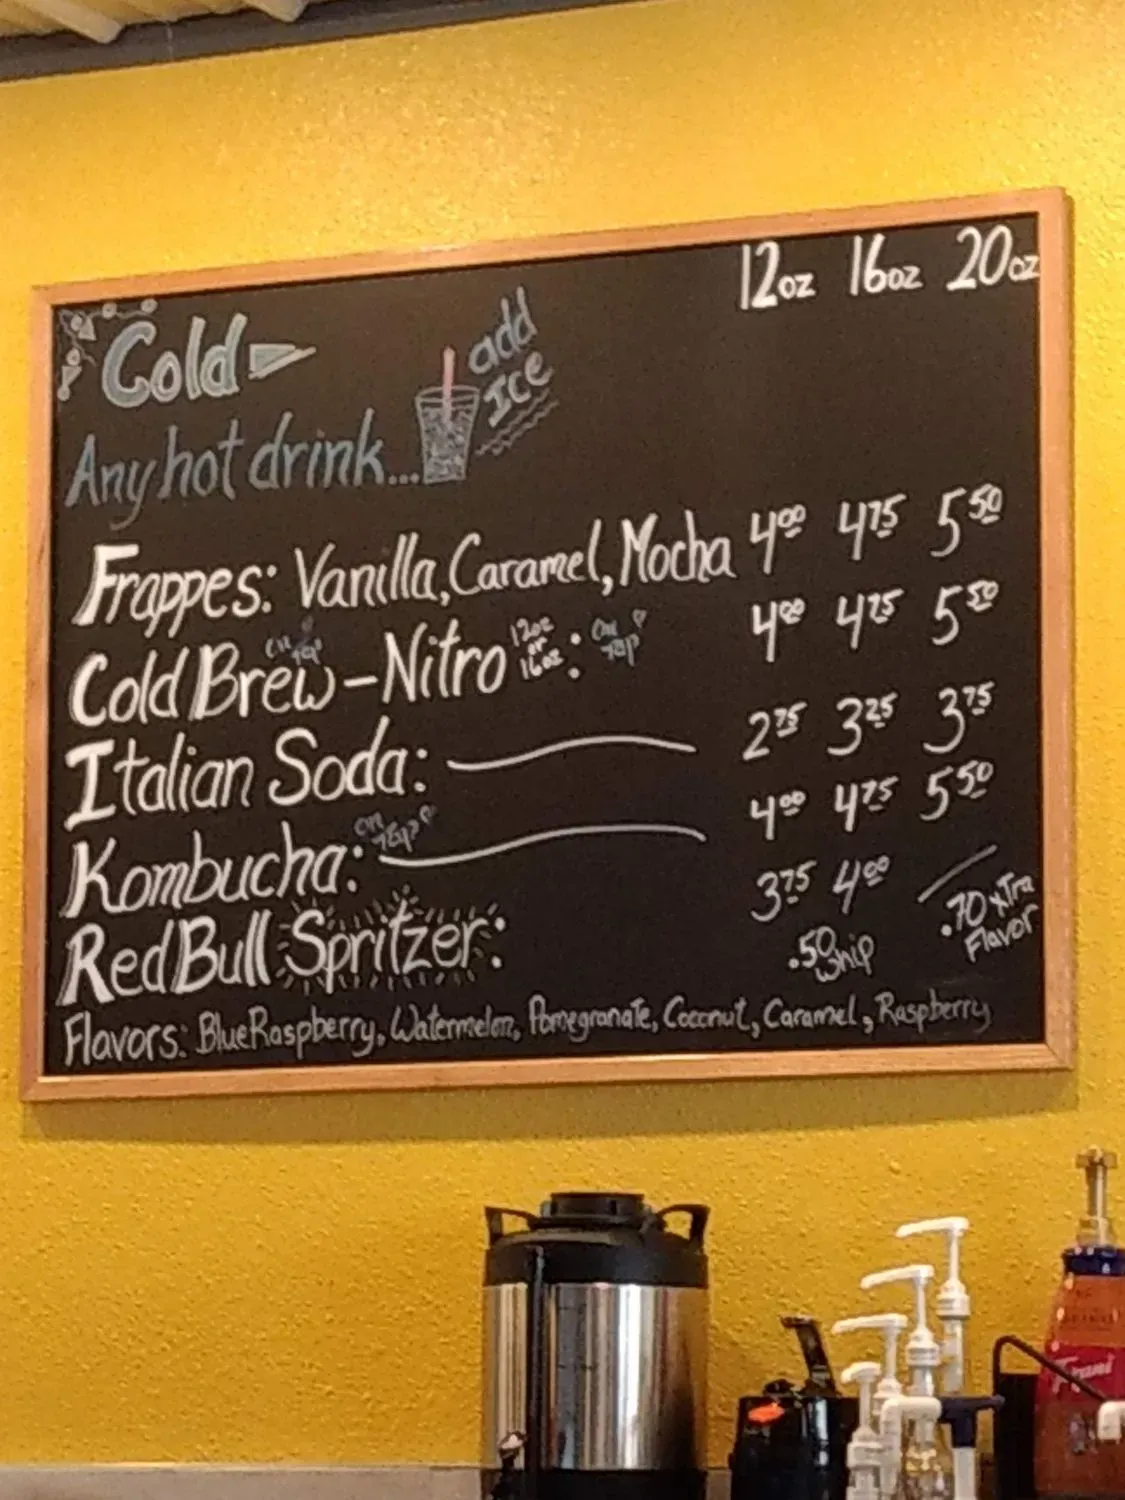 12oz 16oz 20oz
Cold
add
Ice
Any hot drink...
Frappes: Vanilla, Caramel, Mocha 4.00 4.75 5.50
on tap
Cold Brew - Nitro 12oz or 16oz: on tap 4.00 4.75 5.50
Italian Soda: 2.75 3.25 3.75
Kombucha: on tap 4.00 4.75 5.50
Red Bull Spritzer: 3.75 4.00
.50 whip
.70 xTra
Flavor
Flavors: Blue Raspberry, Watermelon, Pomegranate, Coconut, Caramel, Raspberry
Torani